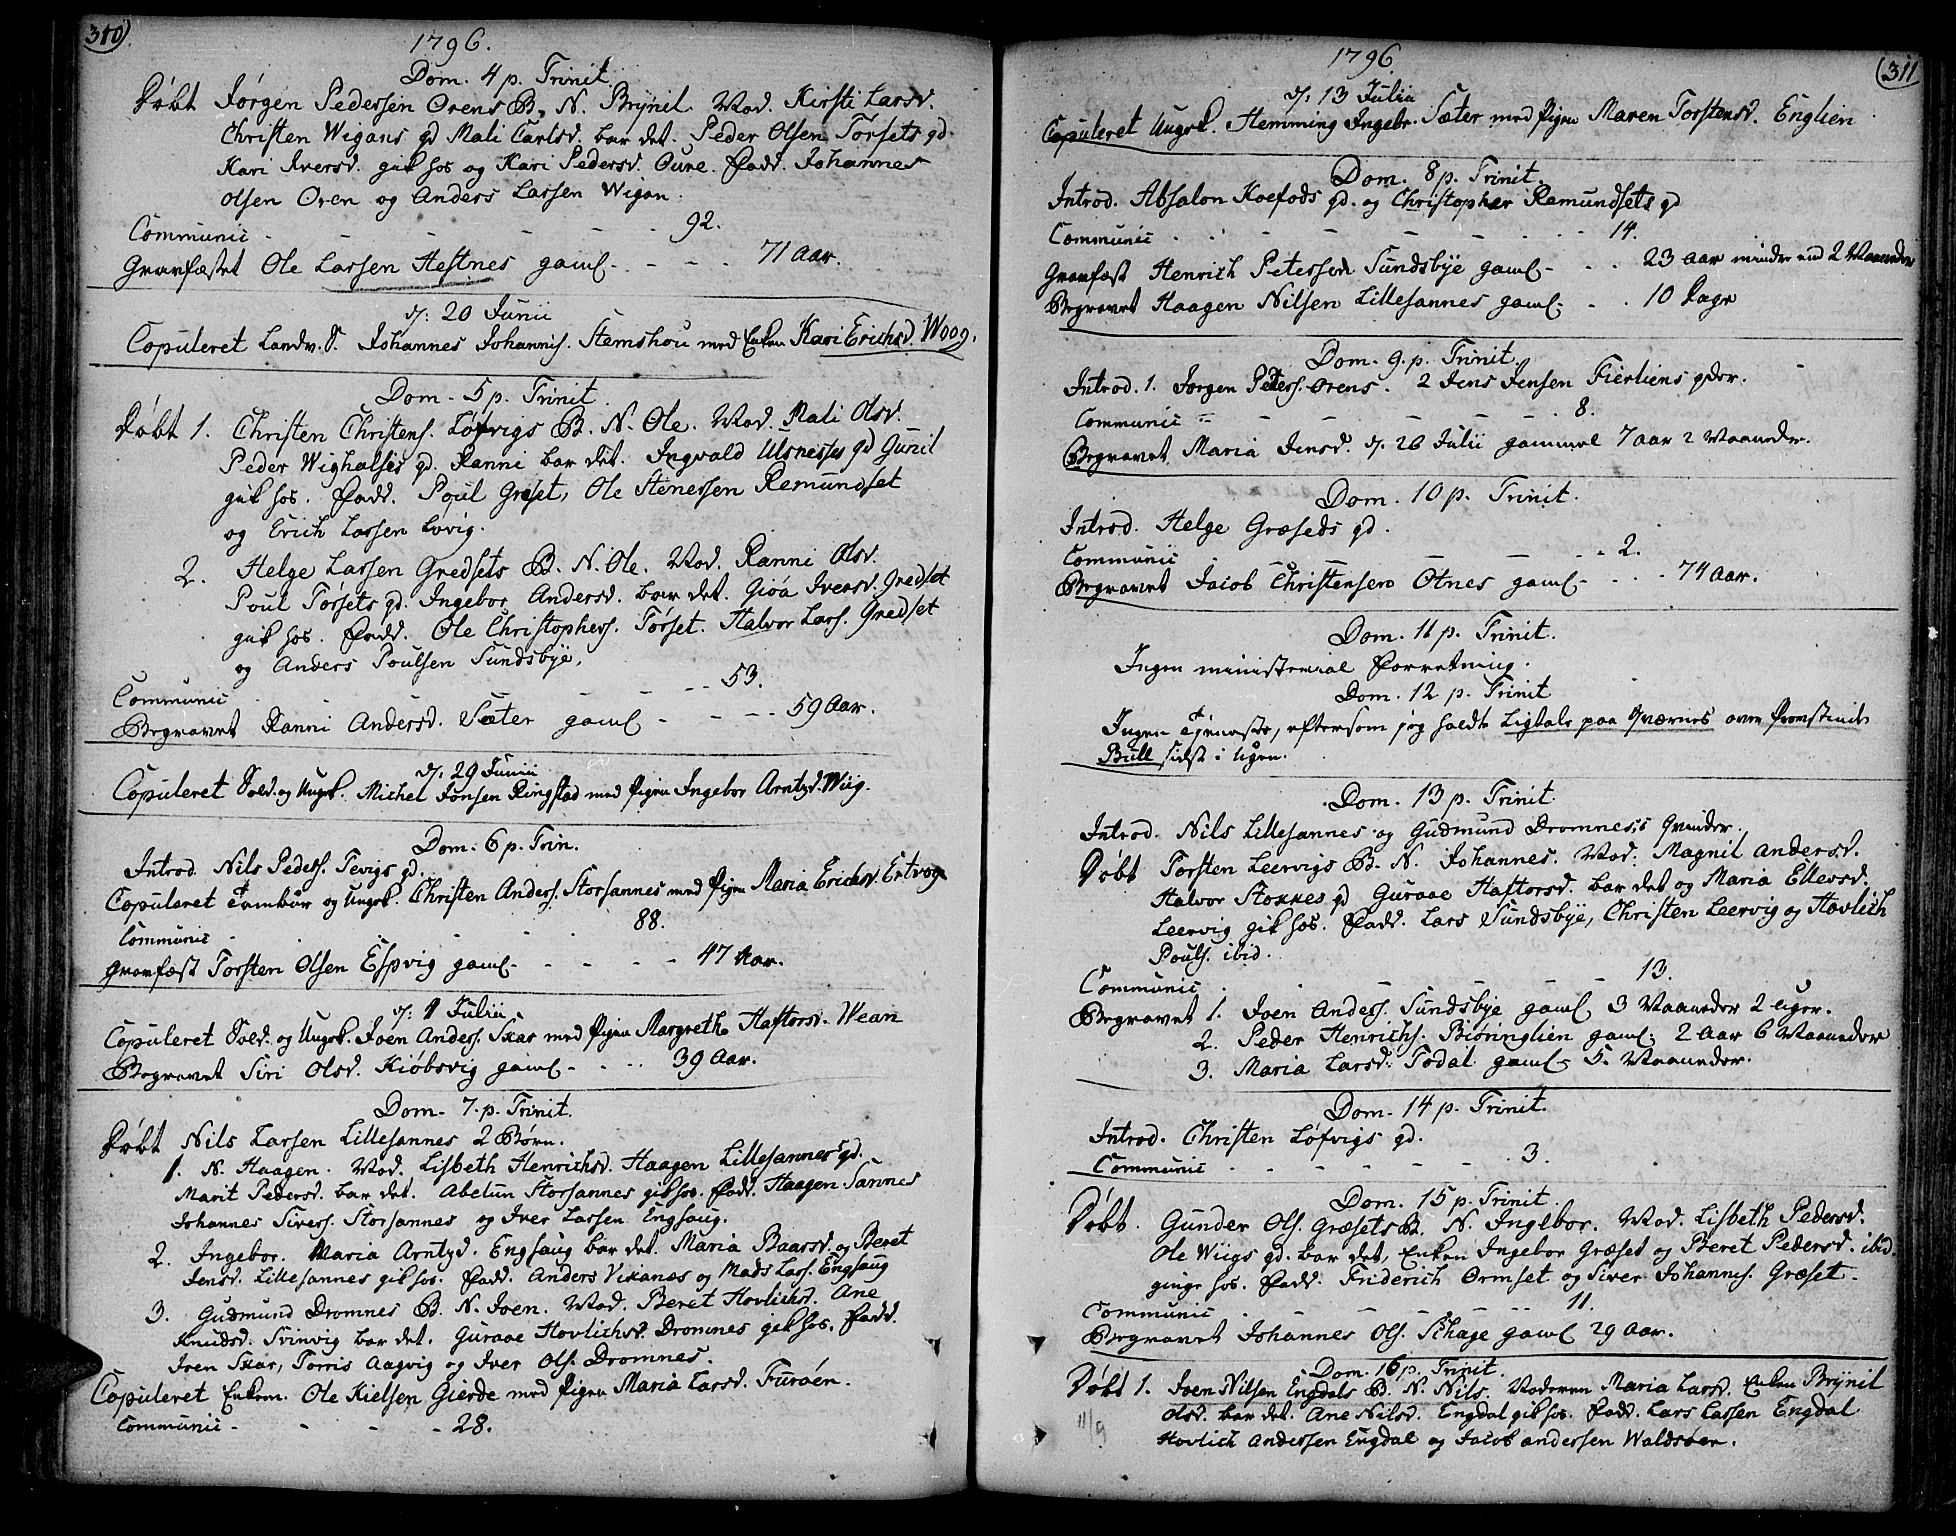 310
1796.
Dom. 4 p. Trinit
Døbt Jørgen Pedersen Orens B. N. Brynil. Mod. Kirsti Larsd.
Christen Wigans qd Mali Carlsd. bar det. Peder Olsen Torsets qd.
Kari Iversd. gik hos og Kari Pedersd. Oure. Fadd. Johannes
Olsen Oren og Anders Larsen Wigan.
Communic - - - - - - 92.
Gravfæstet Ole Larsen Hestnes gaml - - - - 71 Aar.
d: 20 Junii
Copuleret Landv. S. Johannes Johannis. Stemshou med Enken Kari Erichsd. Woog.
Dom. 5 p. Trinit.
Døbt 1. Christen Christens. Løfvigs B. N. Ole. Mod. Mali Olsd.
Peder Wighalses qd. Ranni bar det. Ingvald Ulsnesses qd Gunil
gik hos. Fadd. Poul Greset, Ole Stenessen Remundset
og Erich Larsen Lovig.
2. Helge Larsen Gredsets B. N. Ole. Mod. Ranni Olsd.
Poul Torsets qd. Ingebor Andersd. bar det. Gióa Iversd. Gredset
gik hos. Fadd. Ole Christophers. Torset. Halvor Lars. Gredset
og Anders Poulsen Sundsbye.
Communic - - - - 53.
Begravet Ranni Andersd. Sæter gaml - - - - 59 Aar.
d: 29 Junii
Copuleret Sold. og Ungk. Michel Jonsen Ringstad med Pigen Ingebor Arntzd. Wiig.
Dom. 6 p. Trin.
Introd. Nils Peders. Tevigs qd.
Copuleret Tambur og Ungk. Christen Anders. Storsannes med Pigen Maria Erichsd. Ertvog
Communic - - - - - 88.
Gravfæst Torsten Olsen Espvig gaml - - - - 47 Aar.
d: 1 Julii
Copuleret Sold. og Ungk. Joen Anders. Skar med Pigen Margrethe Haftorsd. Wean
Begravet Siri Olsd. Kiøbsvig gaml - - - 39 Aar.
Dom. 7. p. Trinit.
Døbt Nils Larsen Lillesannes 2 Børn.
1. N. Haagen. Mod. Lisbeth Henrichsd. Haagen Lillesannes qd.
Marit Pedersd. bar det. Abelun Storsannes gik hos. Fadd. Haagen Sannes
Johannes Sivers. Storsannes og Iver Larsen Engsaug.
2. Ingebor. Maria Arntzd. Engsaug bar det. Maria Baarsd. og Beret
Jensd. Lillesannes gik hos. Fadd. Anders Vikanæs og Mads Lars. Engsaug
3. Gudmund Dromnes B. N. Joen. Mod. Beret Hovlichsd. Ane
Knudsd. Svinvig bar det. Guraae Hovlichsd. Dromnes gik hos. Fadd.
Joen Skar, Torris Aagvig og Iver Ols. Dromnes.
Copuleret Enkem. Ole Kielsen Gierde med Pigen Maria Larsd. Furøen.
Communic - - - - 28.
311
1796
d: 13 Julii
Copuleret Ungk. Hemming Ingebr. Sæter med Pigen Maren Torstensd. Englien
Dom. 8 p. Trinit.
Introd. Absalon Koefods qd. og Christopher Remundsets qd
Communic - - - - - - 14.
Gravfæst Henrich Petersen Sundsbye gaml - - - 23 Aar mindre end 2 Maaneder
Begravet Haagen Nilsen Lillesannes gaml - - 10 Dage
Dom. 9. p. Trinit.
Introd. 1. Jørgen Peders. Orens. 2 Jens Jensen Fierliens qder.
Communic - - - - - - 8.
Begravet Maria Jensd. d. 26 Julii gammel 7 Aar 2 Maaneder.
Dom. 10 p. Trinit.
Introd. Helge Græseds qd.
Communic - - - - - 2.
Begravet Jacob Christensen Otnes gaml - - - 74 Aar.
Dom. 11 p. Trinit.
Ingen ministerial Forretning.
Dom. 12 p. Trinit
Ingen Tjeneste, eftersom jeg holdt Ligtale paa Qværnes over Provstinde
Bull sidst i Ugen.
Dom. 13 p. Trinit.
Introd. Nils Lillesannes og Gudmund Dromnesis Qvinder.
Døbt Torsten Leervigs B. N. Johannes. Mod. Magnil Andersd.
Halvor Stoknes qd Guraae Haftorsd. bar det og Maria Ellevsd.
Leervig gik hos. Fadd. Lars Sundsbye, Christen Leervig og Hovlich
Pouls. ibid.
Communic - - - - - - 13.
Begravet 1. Joen Anders. Sundsbye gaml 3 Maaneder 2 Uger.
2. Peder Henrichs. Biøringlien gaml 2 Aar 6 Maaneder
3. Maria Larsd. Todal gaml 5 Maaneder.
Dom. 14 p. Trinit.
Introd. Christen Løfvigs qd.
Communic - - - - - - 3.
Dom. 15 p. Trinit.
Døbt. Gunder Ols. Græsets B. N. Ingebor. Mod. Lisbeth Pedersd.
Ole Wiigs qd. bar det, Enken Ingebor Græset og Beret Pedersd. ibid.
ginge hos. Fadd. Friderich Ormset og Siver Johannes. Græset.
Communic - - - - - - 11.
Begravet Johannes Ols. Schage gaml 29 Aar.
Dom. 16 p. Trinit.
Døbt 1. Joen Nilsen Engdals B. N. Nils. Moderen Maria Larsd. Enken Brynil
Olsd. bar det. Ane Nilsd. Engdal gik hos. Fadd. Lars Larsen Engdal
Hovlich Andersen Engdal og Jacob Andersen Waldsøen.
11/9